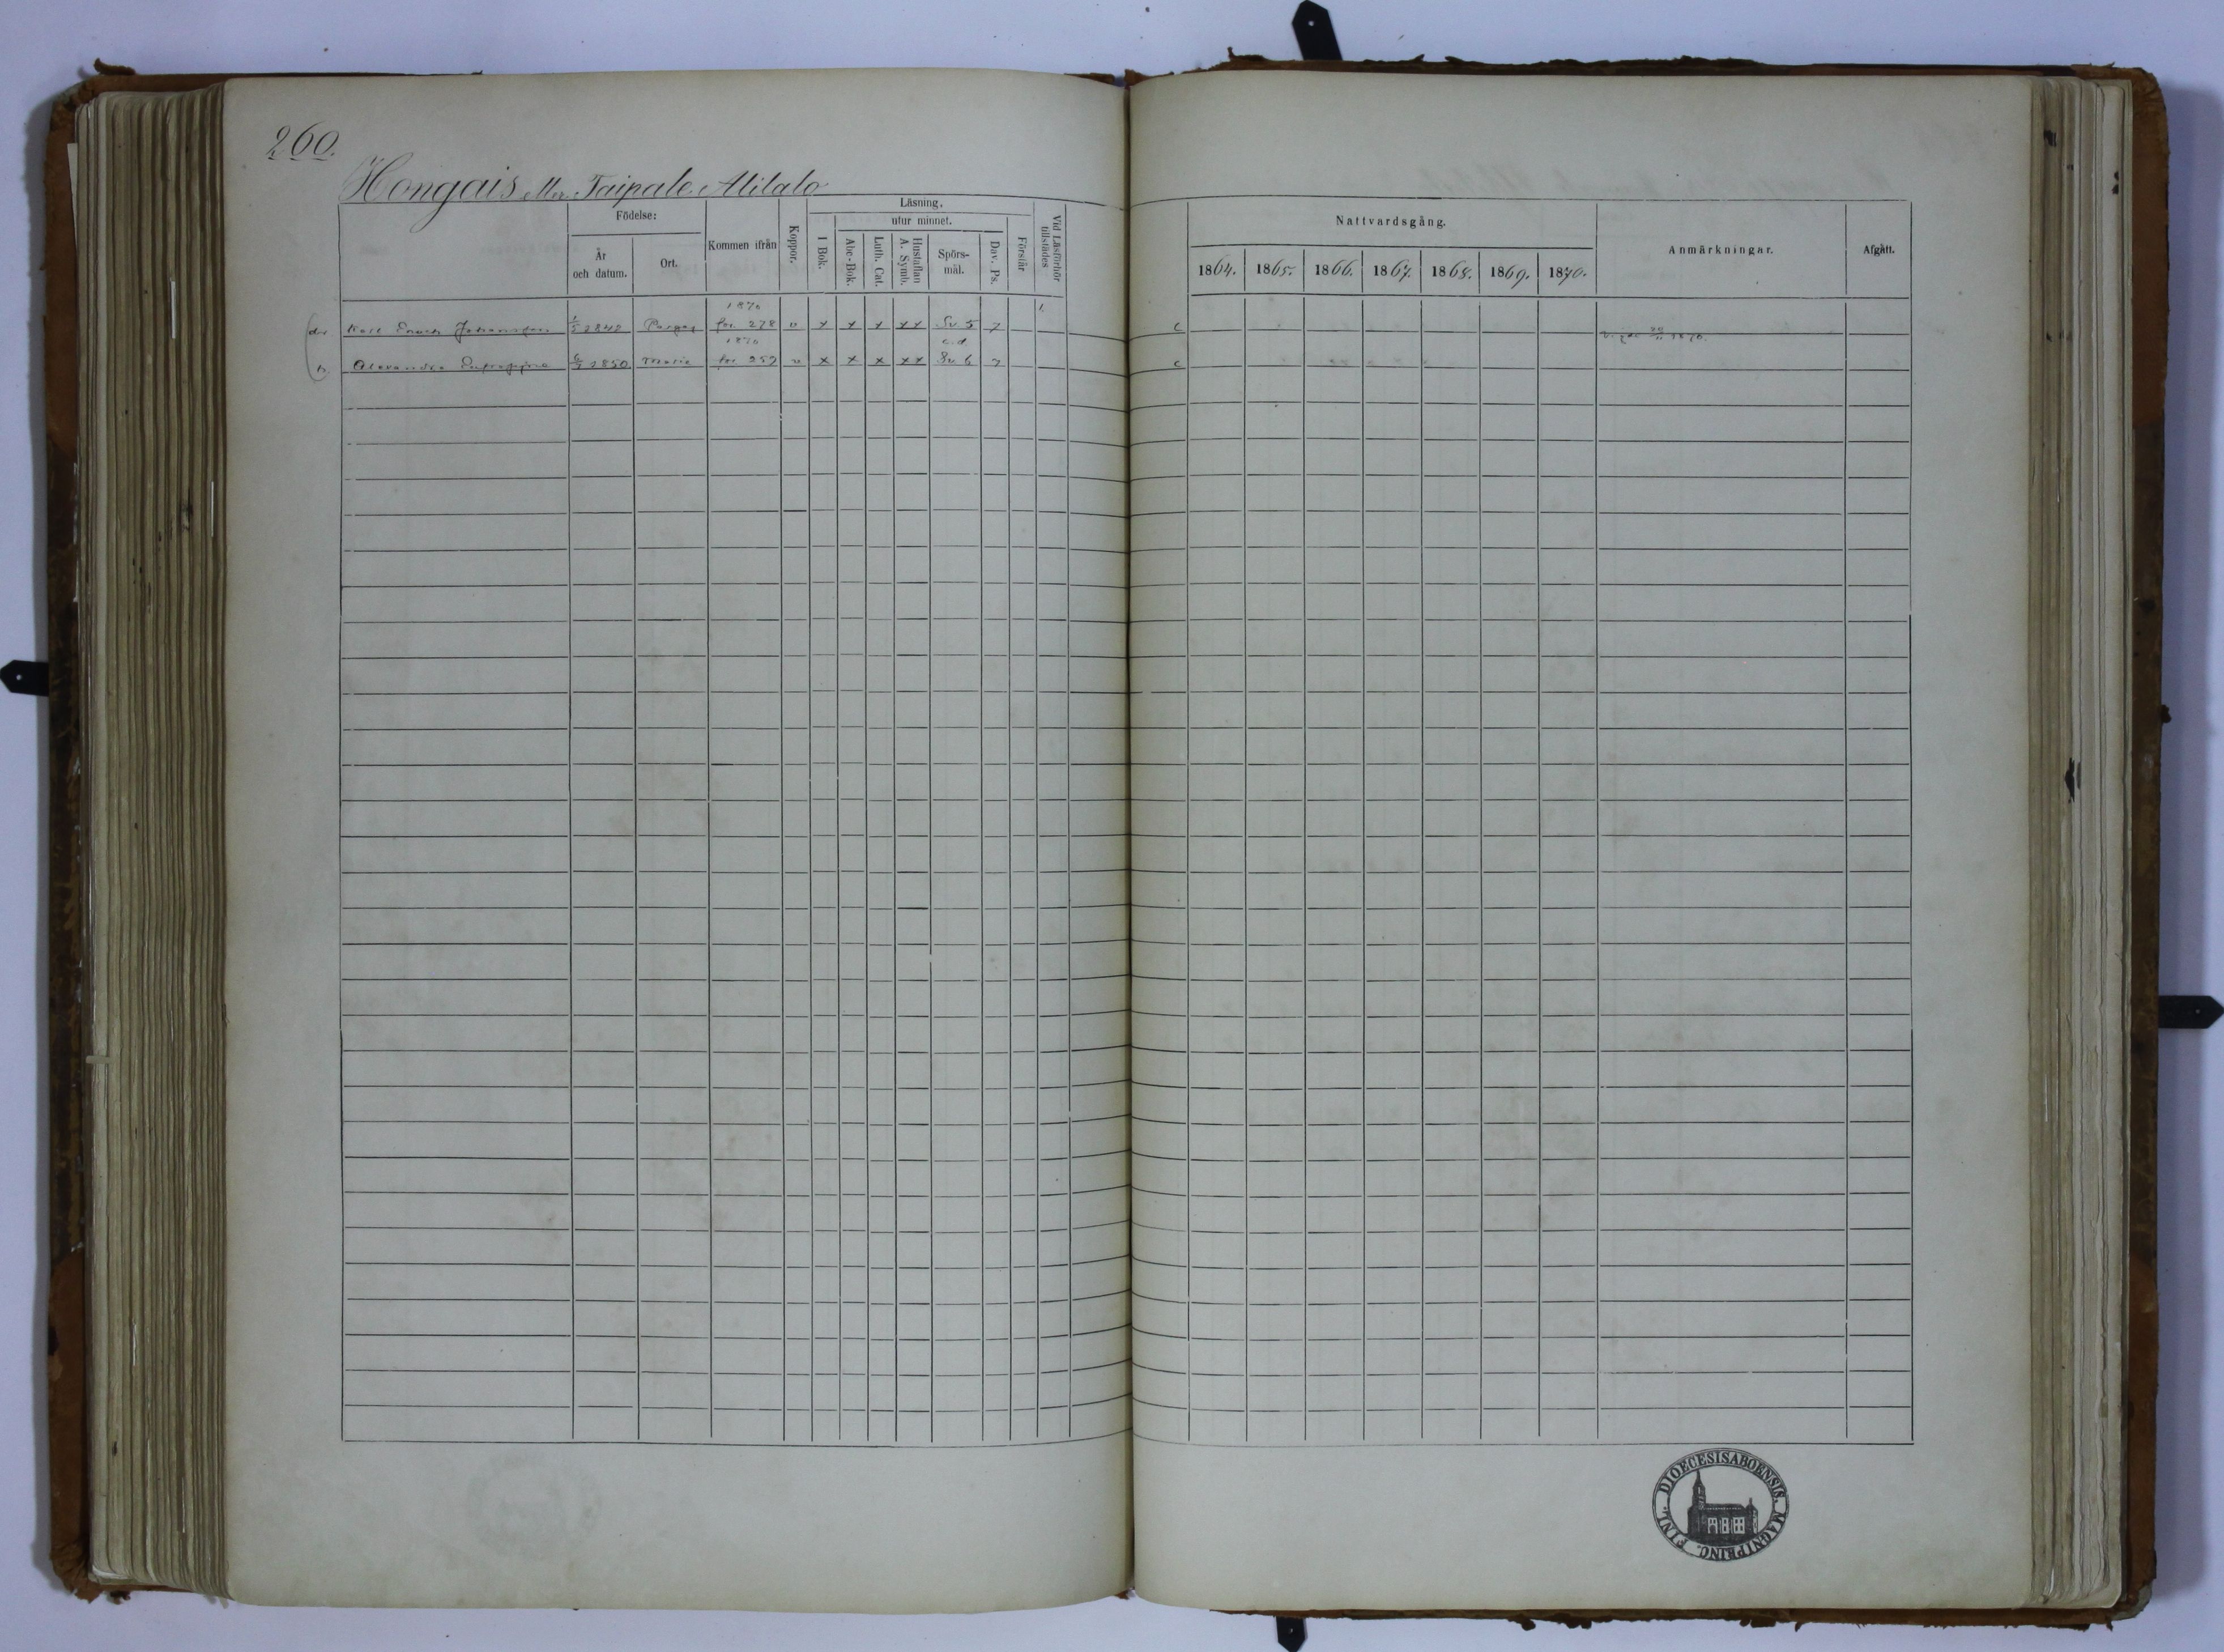 260.
Hongais eller Taipale Alitalo
Födelse:
År och datum.
Ort.
Kommen ifrån
Koppor.
Läsning,
I Bok.
utur minnet.
Abc-Bok.
Luth. Cat.
Hustaflan A. Symb.
Spörs-mål.
Dav. Ps.
Förstår
Vid Läsförhör tillstädes
Nattvardsgång.
1864. 1865. 1866. 1867. 1868. 1869. 1870.
Anmärkningar.
Afgått.
1870
Karl Enoch Johansson 1/5 1842 Pargas for. 278 v x x x xx Sv 5 7 c
1870 c.d
h. Alexandra 1850 Maria for. 259 v x x x xx Sv 6 7 c
DIOECESIS ABOENSIS. MAGNI PRINC. FINL.